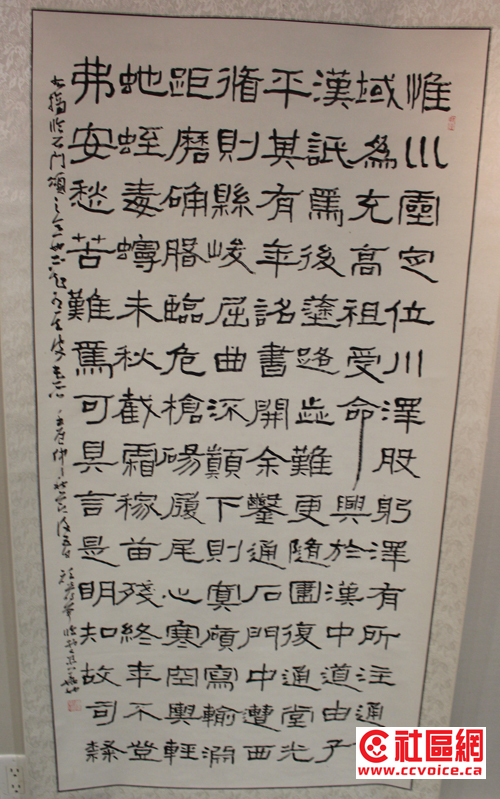 惟川靈定位川澤股躬澤有所注通
域為充高祖受命興於漢中道由子
漢詆焉後塗路歮難更隨圍復通堂光
平其有年詔書開余鑿通石門中遭西
循則縣峻屈曲流顛下則寘廎寫輸淵
距磨确臨危槍碭履尾心寒空輿輕
虵蛭毒蟃未秋截霜稼苗殘終年不登
弗安愁苦難焉可具言是明知故司隸
臨石門頌之
社區網
www.ccvoice.ca